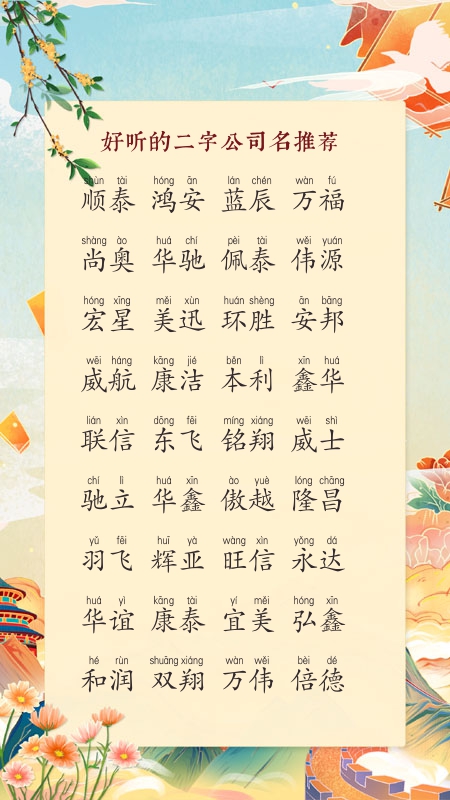 好听的二字公司名推荐
shùn tài hóng ān lán chén wàn fú
顺泰 鸿安 蓝辰 万福
shàng ào huá chí pèi tài wěi yuán
尚奥 华驰 佩泰 伟源
hóng xīng měi xùn huán shèng ān bāng
宏星 美迅 环胜 安邦
wēi háng kāng jié běn lì xīn huá
威航 康洁 本利 鑫华
lián xìn dōng fēi míng xiáng wēi shì
联信 东飞 铭翔 威士
chí lì huá xīn ào yuè lóng chāng
驰立 华鑫 傲越 隆昌
yǔ fēi huī yà wàng xìn yǒng dá
羽飞 辉亚 旺信 永达
huá yì kāng tài yí měi hóng xīn
华谊 康泰 宜美 弘鑫
hé rùn shuāng xiáng wàn wěi bèi dé
和润 双翔 万伟 倍德